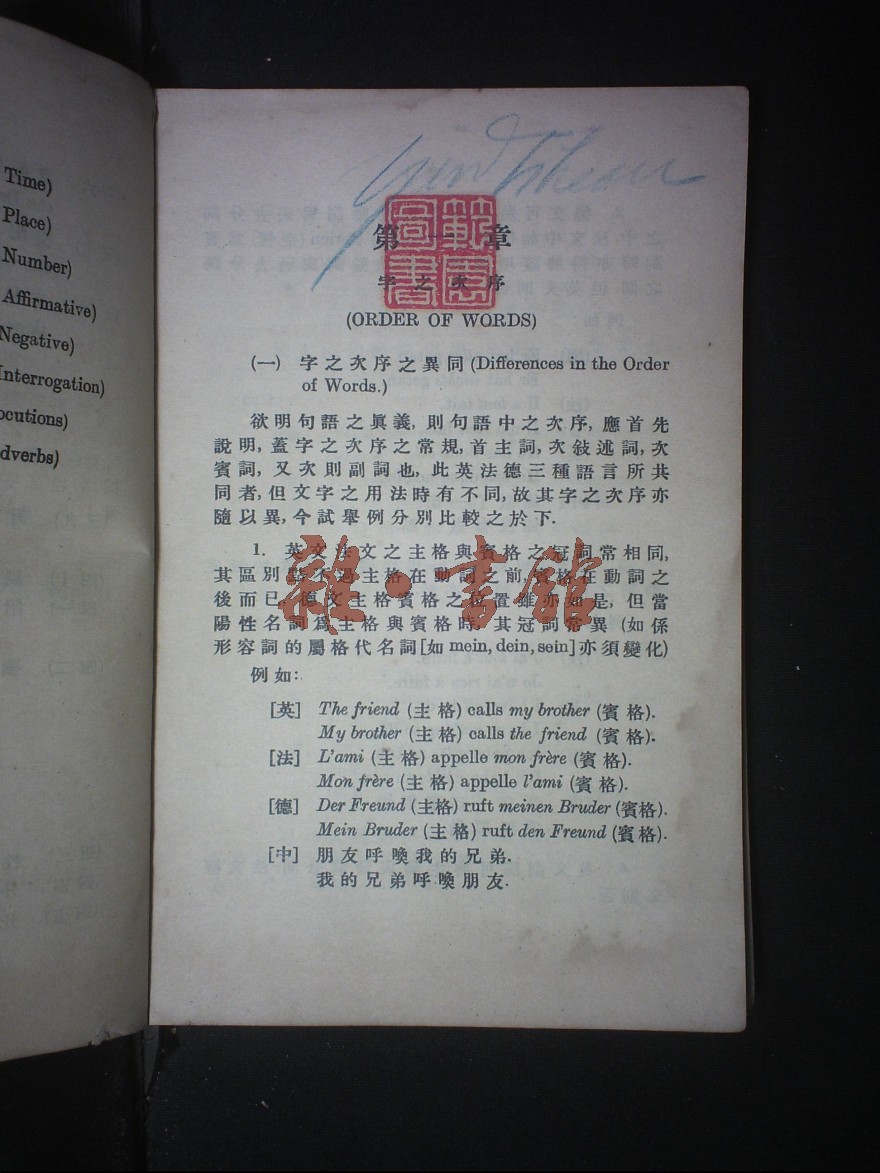 Time)
Place)
Number)
Affirmative)
Negative)
Interrogation)
ocutions)
dverbs)
第一章
字之次序
(ORDER OF WORDS)
(一) 字之次序之異同 (Differences in the Order
of Words.)
欲明句語之眞義, 則句語中之次序, 應首先
說明, 蓋字之次序之常規, 首主詞, 次敍述詞, 次
賓詞, 又次則副詞也, 此英法德三種語言所共
同者, 但文字之用法時有不同, 故其字之次序亦
隨以異, 今試舉例分別比較之於下.
1. 英文法文之主格與賓格之冠詞常相同,
其區別點不過主格在動詞之前, 賓格在動詞之
後而已, 德文主格賓格之位置雖亦如是, 但當
陽性名詞爲主格與賓格時, 其冠詞常異 (如係
形容詞的屬格代名詞 [如 mein, dein, sein] 亦須變化)
例如:
[英] The friend (主格) calls my brother (賓格).
My brother (主格) calls the friend (賓格).
[法] L'ami (主格) appelle mon frère (賓格).
Mon frère (主格) appelle l'ami (賓格).
[德] Der Freund (主格) ruft meinen Bruder (賓格).
Mein Bruder (主格) ruft den Freund (賓格).
[中] 朋友呼喚我的兄弟.
我的兄弟呼喚朋友.
範園圖書
雜·書館